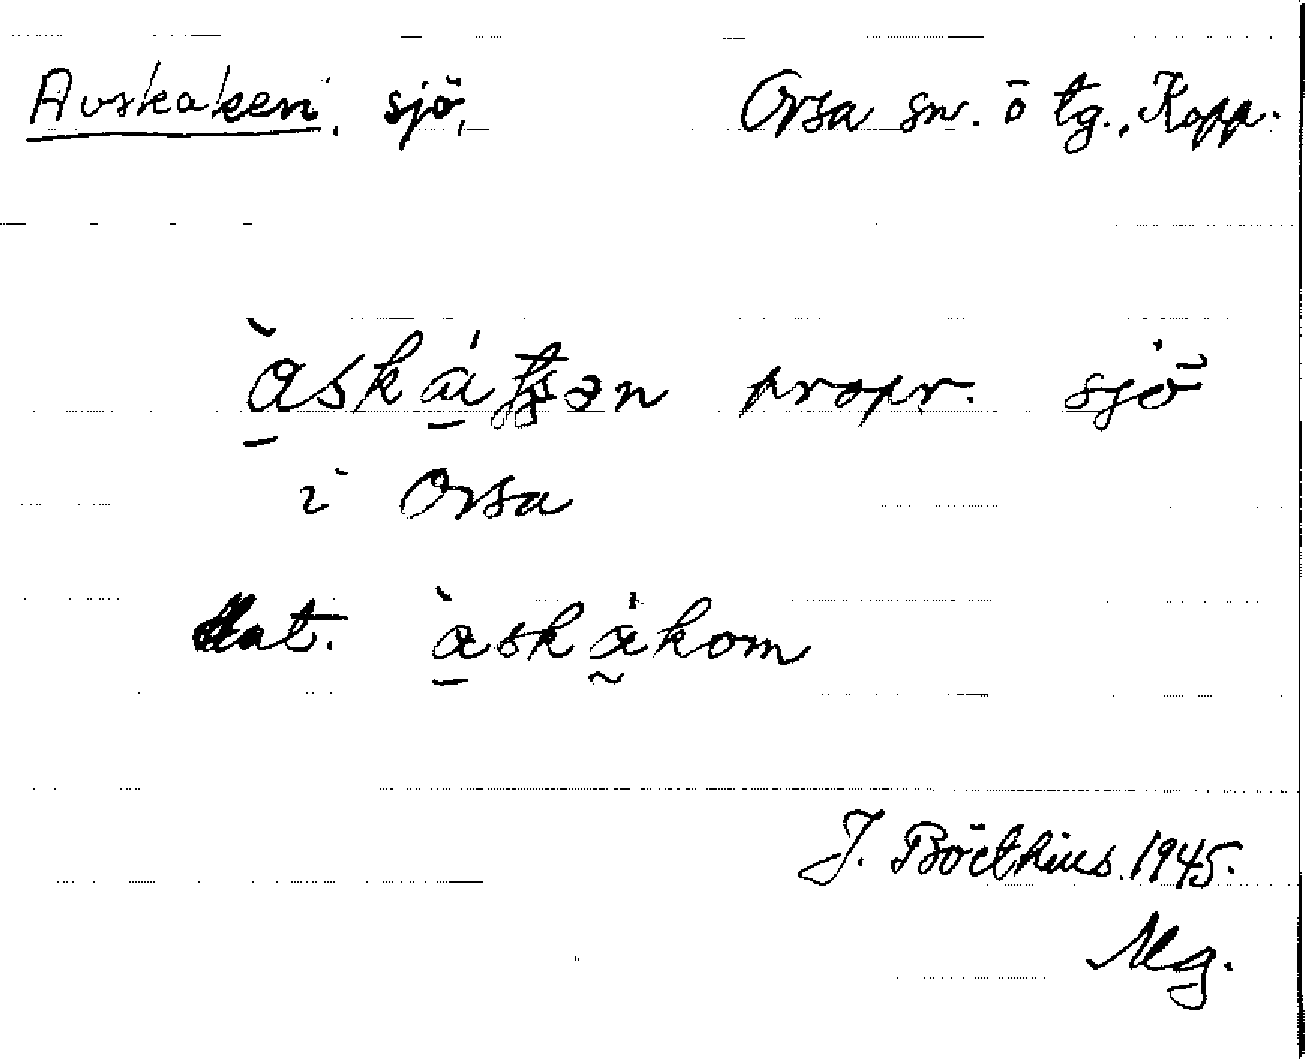 Avskaken, sjö, Orsa sn. ö tg., Kopp.
àskátsən propr. sjö
i Orsa
dat. àskákom
J. Boëthius 1945.
Mg.